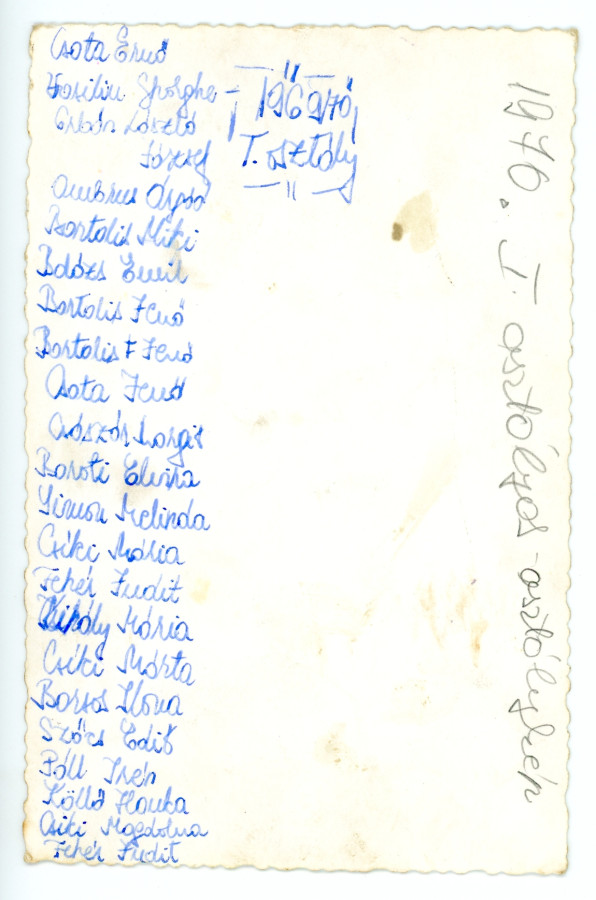 Csata Ernő
Vasiliu Gheorghe
Orbán László
József
Ambrus Árpád
Bartalis Miki
Balázs Emil
Bartalis Jenő
Bartalis F Jenő
Csata Jenő
Császár Margit
Baroti Elvira
Simon Melinda
Csíki Mária
Fehér Judit
Király Mária
Csíki Márta
Barsos Ilona
Szőcs Edit
Páll Irén
Köllő Ilonka
Csiki Magdolna
Fehér Judit
196970
I. osztály
1970. I. osztályos osztálykép